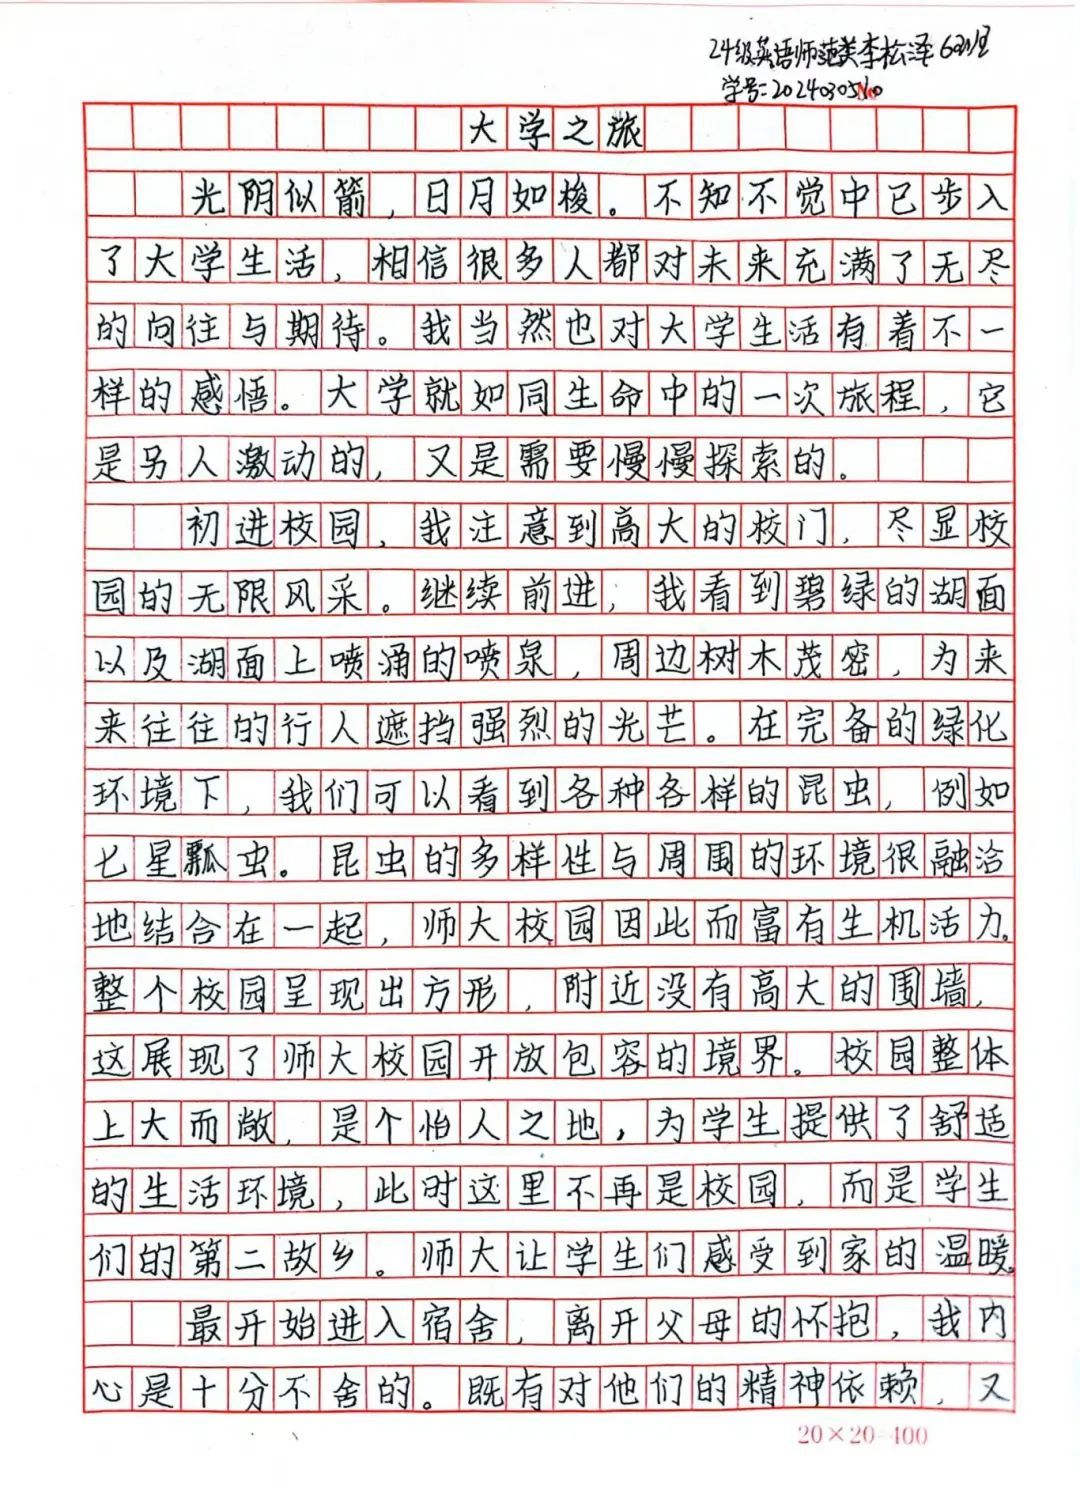 24级英语师范类李松泽6班
学号:2024030510
No
大学之旅
光阴似箭,日月如梭。不知不觉中已步入
了大学生活,相信很多人都对未来充满了无尽
的向往与期待。我当然也对大学生活有着不一
样的感悟。大学就如同生命中的一次旅程,它
是另人激动的,又是需要慢慢探索的。
初进校园,我注意到高大的校门,尽显校
园的无限风采。继续前进,我看到碧绿的湖面
以及湖面上喷涌的喷泉,周边树木茂密,为来
来往往的行人遮挡强烈的光芒。在完备的绿化
环境下,我们可以看到各种各样的昆虫,例如
七星瓢虫。昆虫的多样性与周围的环境很融洽
地结合在一起,师大校园因此而富有生机活力。
整个校园呈现出方形,附近没有高大的围墙,
这展现了师大校园开放包容的境界。校园整体
上大而敞,是个怡人之地,为学生提供了舒适
的生活环境,此时这里不再是校园,而是学生
们的第二故乡。师大让学生们感受到家的温暖。
最开始进入宿舍,离开父母的怀抱,我内
心是十分不舍的。既有对他们的精神依赖,又
20×20=400